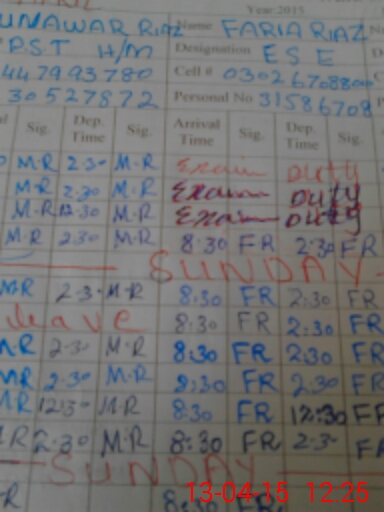 Year:2015
UNAWAR RIAZ Name FARIA RIAZ
PST H/M Designation ESE
447993780 Cell # 03026708800
30527872 Personal No 31586708
Sig. Dep. Time Sig. Arrival Time Sig. Dep. Time
M.R 2.30 M.R Exam Duty
M.R 2.30 M.R Exam Duty
M.R 12.30 M.R Exam Duty
M.R 2.30 M.R 8.30 FR 2.30 FR
SUNDAY
MR 2.3 M.R 8.30 FR 2.30 FR
leave 8.30 FR 2.30 FR
MR 2.3 M.R 8.30 FR 2.30 FR
MR 2.30 M.R 8.30 FR 2.30 FR
MR 12.3 M.R 8.30 FR 12.30 FF
MR 2.30 M.R 8.30 FR 2.3 FA
SUNDAY
R 8.30 FR
13-04-15 12:25